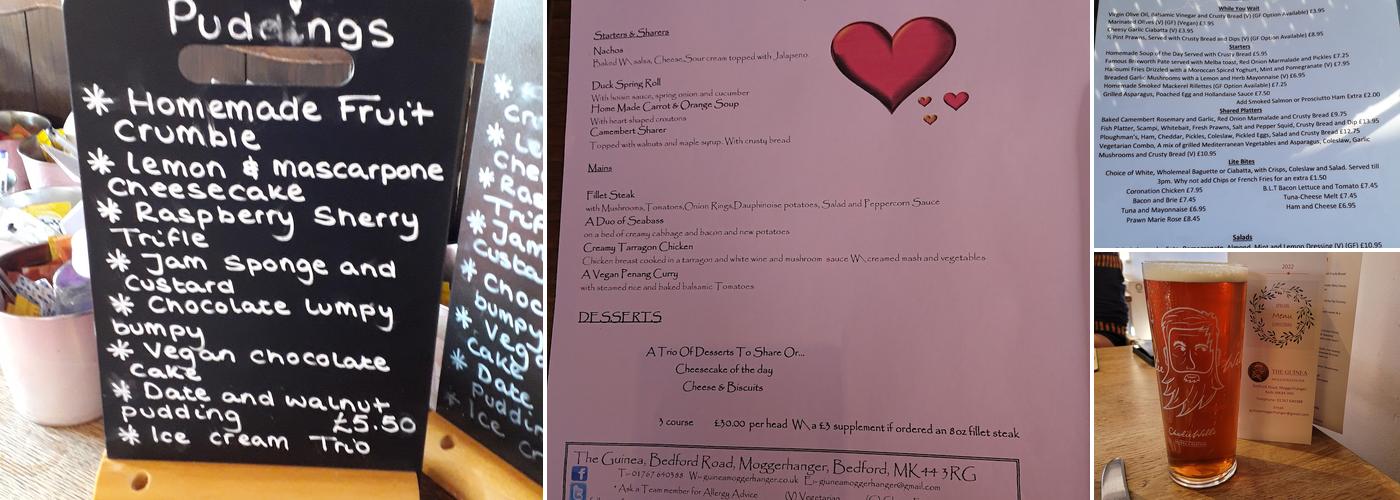 Puddings
* Homemade Fruit
Crumble
* Lemon & mascarpone
Cheesecake
* Raspberry Sherry
Trifle
* Jam Sponge and
Custard
* Chocolate lumpy
bumpy
* Vegan chocolate
Cake
* Date and walnut
pudding £5.50
* Ice cream Trio
Starters & Sharers
Nachos
Baked W\ salsa, Cheese, Sour cream topped with Jalapeno
Duck Spring Roll
With hoisin sauce, spring onion and cucumber
Home Made Carrot & Orange Soup
With heart shaped croutons
Camembert Sharer
Topped with walnuts and maple syrup. With crusty bread
Mains
Fillet Steak
with Mushrooms, Tomatoes, Onion Rings, Dauphinoise potatoes, Salad and Peppercorn Sauce
A Duo of Seabass
on a bed of creamy cabbage and bacon and new potatoes
Creamy Tarragon Chicken
Chicken breast cooked in a tarragon and white wine and mushroom sauce W\ creamed mash and vegetables
A Vegan Penang Curry
with steamed rice and baked balsamic Tomatoes
DESSERTS
A Trio Of Desserts To Share Or...
Cheesecake of the day
Cheese & Biscuits
3 course £30.00 per head W\ a £3 supplement if ordered an 8oz fillet steak
The Guinea, Bedford Road, Moggerhanger, Bedford, MK44 3RG
T= 01767 640388 W= guineamoggerhanger.co.uk E= guineamoggerhanger@gmail.com
* Ask a Team member for Allergy Advice (V) Vegetarian
While You Wait
Virgin Olive Oil, Balsamic Vinegar and Crusty Bread (V) (GF Option Available) £3.95
Marinated Olives (V) (GF) (Vegan) £3.95
Cheesy Garlic Ciabatta (V) £3.95
½ Pint Prawns, Served with Crusty Bread and Dips (V) (GF Option Available) £8.95
Starters
Homemade Soup of the Day Served with Crusty Bread £5.95
Famous Brewworth Pate served with Melba toast, Red Onion Marmalade and Pickles £7.25
Halloumi Fries Drizzled with a Moroccan Spiced Yoghurt, Mint and Pomegranate (V) £7.95
Breaded Garlic Mushrooms with a Lemon and Herb Mayonnaise (V) £6.95
Homemade Smoked Mackerel Rillettes (GF Option Available) £7.25
Grilled Asparagus, Poached Egg and Hollandaise Sauce £7.50
Add Smoked Salmon or Prosciutto Ham Extra £2.00
Shared Platters
Baked Camembert Rosemary and Garlic, Red Onion Marmalade and Crusty Bread £9.75
Fish Platter, Scampi, Whitebait, Fresh Prawns, Salt and Pepper Squid, Crusty Bread and Dip £13.95
Ploughman's, Ham, Cheddar, Pickles, Coleslaw, Pickled Eggs, Salad and Crusty Bread £12.75
Vegetarian Combo, A mix of grilled Mediterranean Vegetables and Asparagus, Coleslaw, Garlic
Mushrooms and Crusty Bread (V) £10.95
Lite Bites
Choice of White, Wholemeal Baguette or Ciabatta, with Crisps, Coleslaw and Salad. Served till
3pm. Why not add Chips or French Fries for an extra £1.50
Coronation Chicken £7.95 B.L.T Bacon Lettuce and Tomato £7.45
Bacon and Brie £7.45 Tuna-Cheese Melt £7.45
Tuna and Mayonnaise £6.95 Ham and Cheese £6.95
Prawn Marie Rose £8.45
Salads
Almond, Mint and Lemon Dressing (V) (GF) £10.95
2022
Menu
THE GUINEA
Charlie Wells